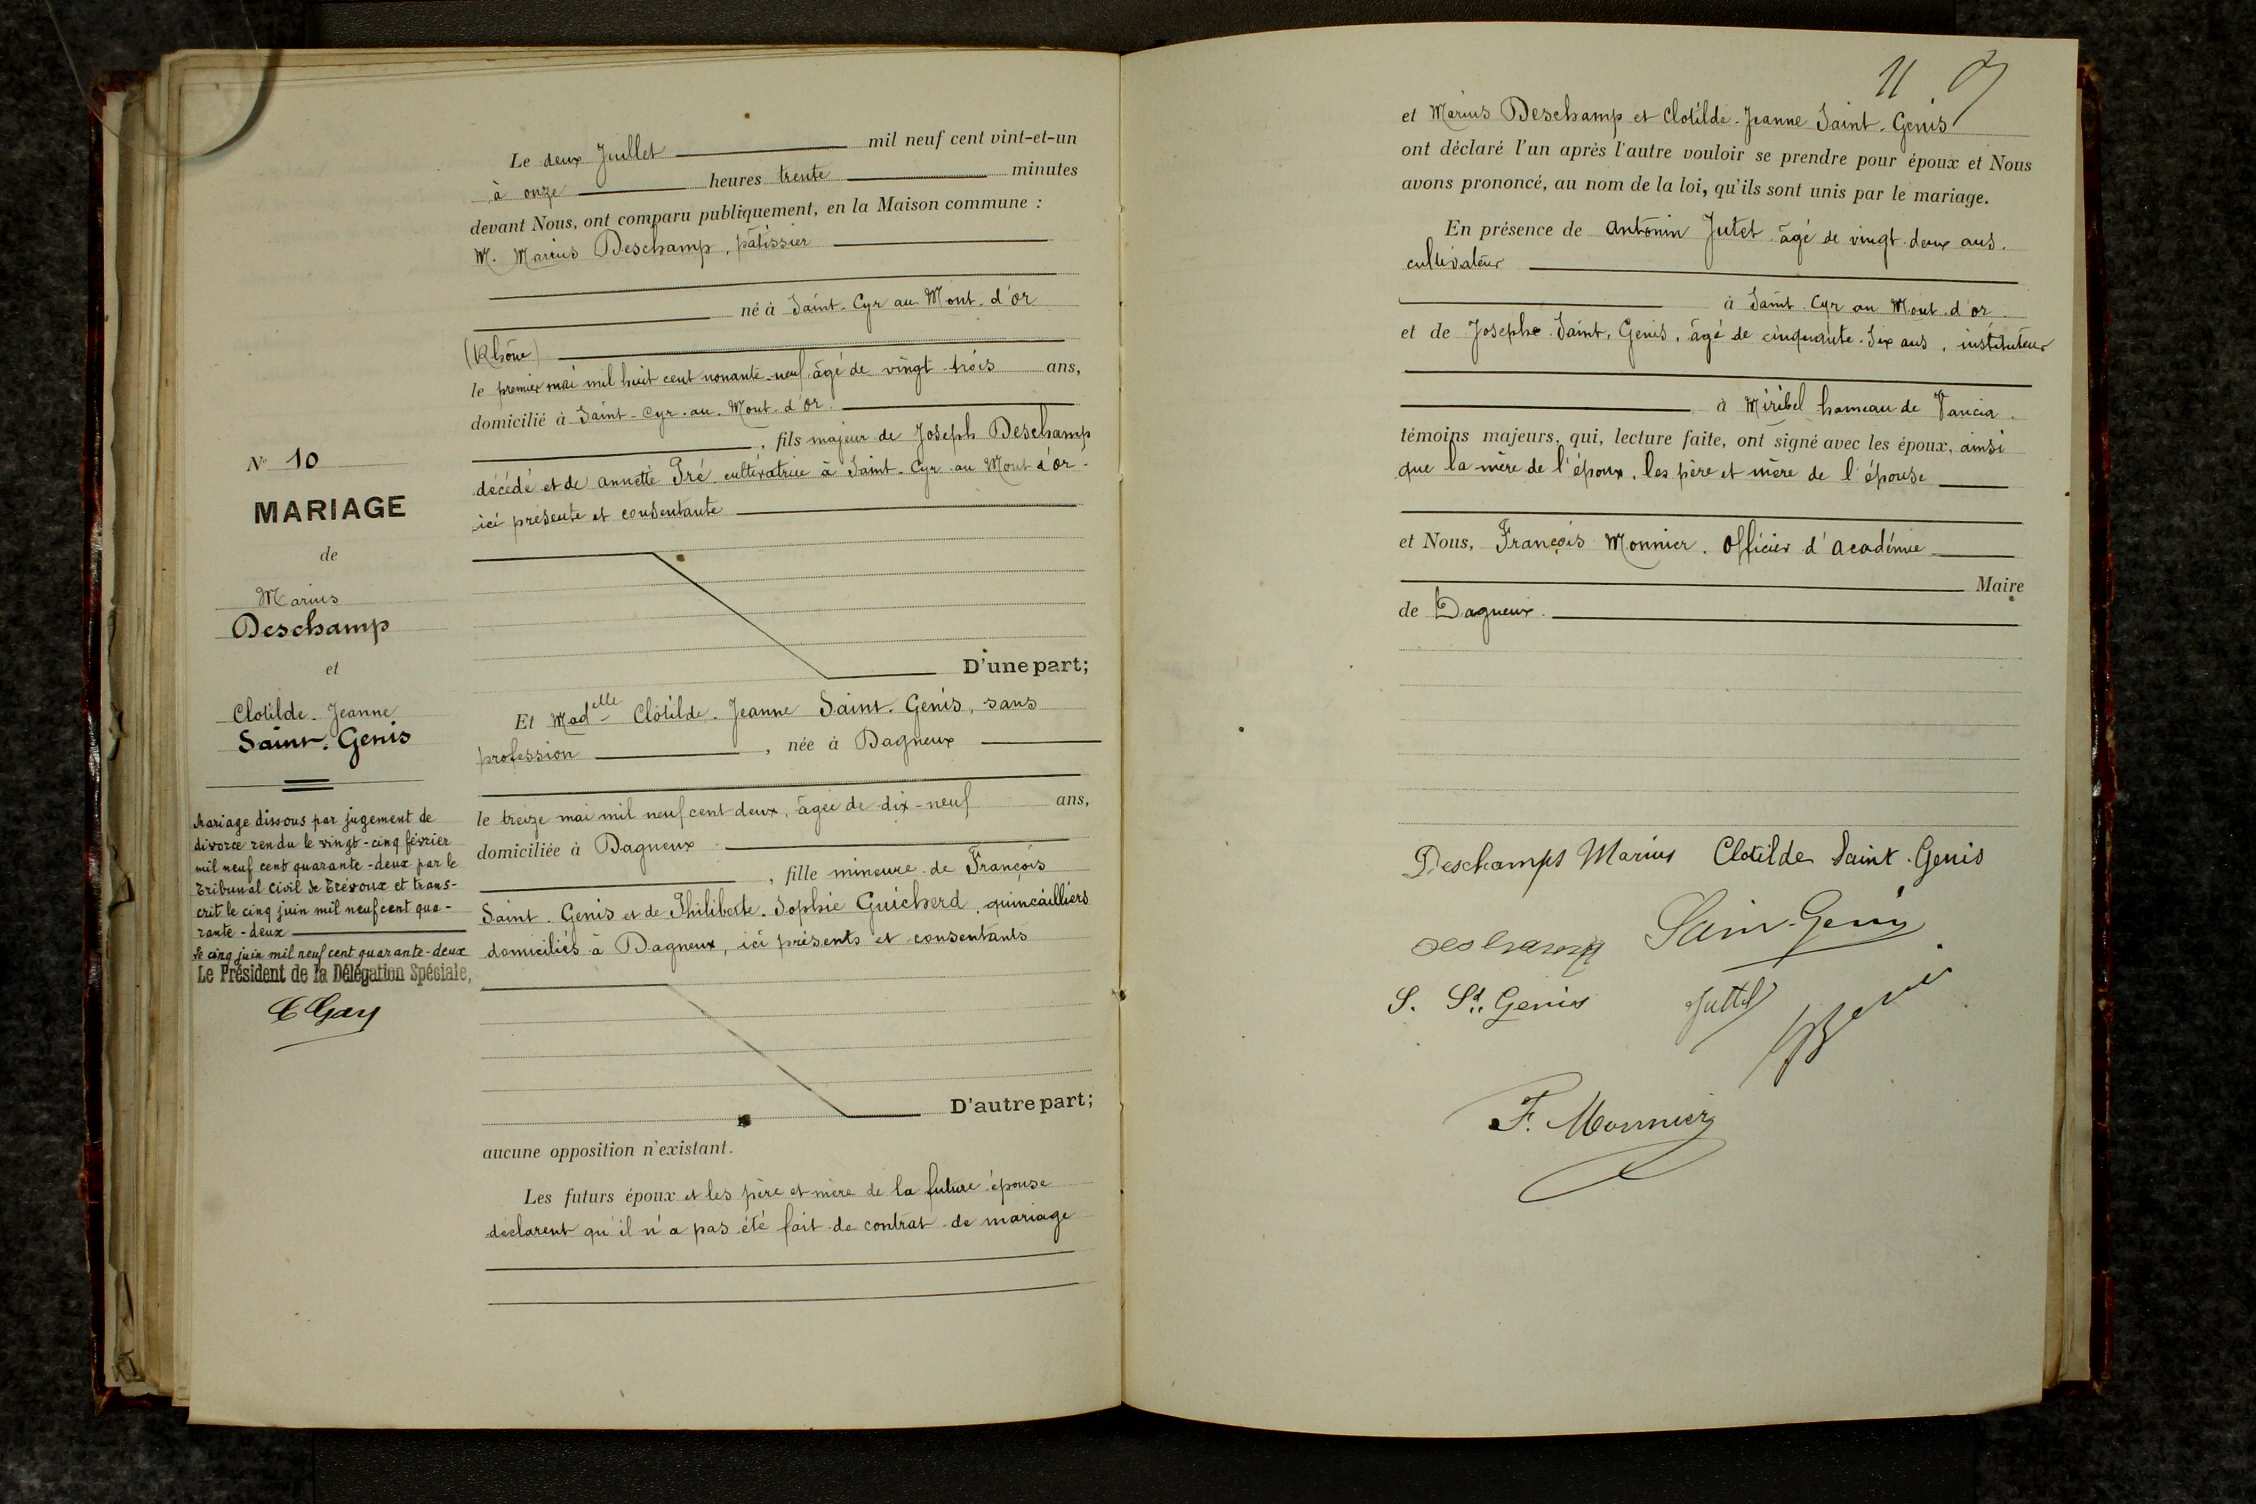 Le deux Juillet mil neuf cent vint-et-un
à onze heures trente minutes
devant Nous, ont comparu publiquement, en la Maison commune :
M. Marius Deschamp, pâtissier
né à Saint-Cyr au Mont-d'or
(Rhône)
le premier mai mil huit cent nonante-neuf âgé de vingt-trois ans,
domicilié à Saint-Cyr-au-Mont-d'or.
, fils majeur de Joseph Deschamp
décédé et de annette Pré cultivatrice à Saint-Cyr au Mont d'or.
ici présente et consentante
D'une part;
Et Madelle Clotilde-Jeanne Saint-Genis, sans
profession , née à Dagneux
le treize mai mil neuf cent deux, âgée de dix-neuf ans,
domiciliée à Dagneux
, fille mineure de François
Saint-Genis et de Philiberte-Sophie Guicherd, quincailliers
domiciliés à Dagneux, ici présents et consentants
D'autre part;
aucune opposition n'existant.
Les futurs époux et les père et mère de la future épouse
déclarent qu'il n'a pas été fait de contrat de mariage
No 10
MARIAGE
de
Marius
Deschamp
et
Clotilde-Jeanne
Saint-Genis
Mariage dissous par jugement de
divorce rendu le vingt-cinq février
mil neuf cent quarante-deux par le
Tribunal Civil de Trévoux et trans-
crit le cinq juin mil neuf cent qua-
rante-deux
le cinq juin mil neuf cent quarante-deux
Le Président de la Délégation Spéciale,
Gay
11
et Marius Deschamp et Clotilde-Jeanne Saint-Genis
ont déclaré l'un après l'autre vouloir se prendre pour époux et Nous
avons prononcé, au nom de la loi, qu'ils sont unis par le mariage.
En présence de antonin Jutet âgé de vingt-deux ans.
cultivateur
à Saint-Cyr au Mont-d'or
et de Joseph Saint-Genis, âgé de cinquante-six ans, instituteur
à Miribel hameau de Vancia
témoins majeurs, qui, lecture faite, ont signé avec les époux, ainsi
que la mère de l'époux, les père et mère de l'épouse
et Nous, François Monnier. Officier d'académie
Maire
de Dagneux.
Deschamps Marius Clotilde Saint-Genis
Saint-Genis
S. St Genis Juttet
F. Monnier